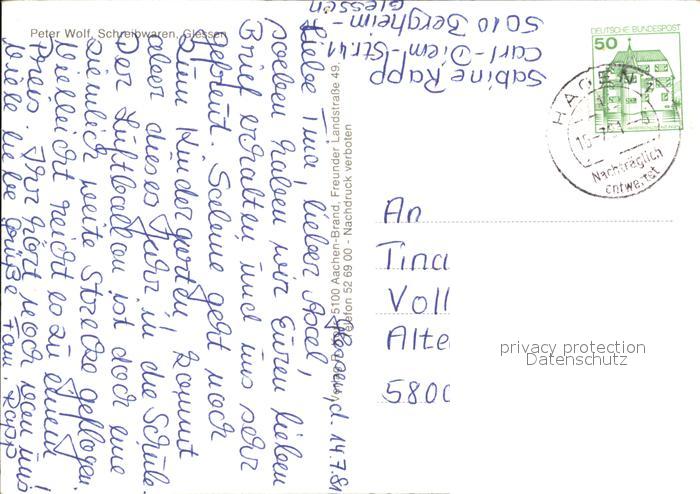 Peter Wolf, Schreibwaren, Glessen
Glessen, d. 14.7.81
Liebe Tina, lieber Axel,
soeben haben wir Euren lieben
Brief erhalten und uns sehr
gefreut. Sabine geht noch
zum Kindergarten, kommt
aber dieses Jahr in die Schule.
Der Luftballon ist doch eine
ziemlich weite Strecke geflogen.
Vielleicht reicht es zu einem
Preis. Ihr hört noch von uns!
Viele liebe Grüße Fam. Rapp
5100 Aachen-Brand, Freunder Landstraße 49,
Telefon 52 69 00 - Nachdruck verboten
Sabine Rapp
Carl-Diem-Str. 41
5010 Bergheim-
Glessen
DEUTSCHE BUNDESPOST
50
HAGEN
Nachträglich
entwertet
An
Tina
Voll
Alte
5800
privacy protection
Datenschutz